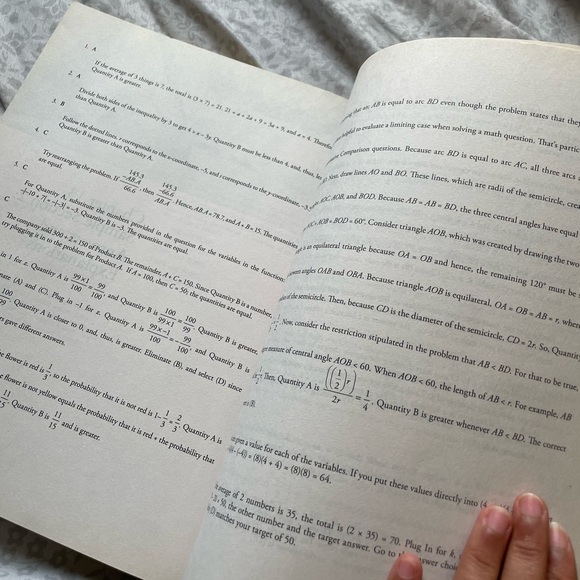 1. A
If the average of 3 things is 7, the total is (3 × 7) = 21. 21 = a + 2a + 9 = 3a + 9, and a = 4. Therefore,
Quantity A is greater.
2. A
Divide both sides of the inequality by 3 to get 4 + x − 3y. Quantity B must be less than 4, and, thus, less
than Quantity A.
3. B
Follow the dotted lines. r corresponds to the x-coordinate, −5, and s corresponds to the y-coordinate, −3.
Quantity B is greater than Quantity A.
4. C
Try rearranging the problem. If 145.3 −AB.A 66.6, then 145.3 −66.6 AB.A. Hence, AB.A = 78.7, and A + B = 15. The quantities
are equal.
5. C
For Quantity A, substitute the numbers provided in the question for the variables in the function:
−|−10 + 7| = −|−3| = −3. Quantity B is −3. The quantities are equal.
C
The company sold 300 ÷ 2 = 150 of Product B. The remainder, A + C = 150. Since Quantity B is a number,
try plugging it in to the problem for Product A. If A = 100, then C = 50; the quantities are equal.
in 1 for z. Quantity A is 99×1/100 = 99/100, and Quantity B is 100/99×1 = 100/99. Quantity B is greater.
nate (A) and (C). Plug in −1 for z. Quantity A is 99×−1/100 = −99/100, and Quantity B is
100/99. Quantity A is closer to 0, and, thus, is greater. Eliminate (B), and select (D) since
rs gave different answers.
e flower is red is 1/3, so the probability that it is not red is 1 − 1/3 = 2/3. Quantity A is
e flower is not yellow equals the probability that it is red + the probability that
11/15. Quantity B is 11/15 and is greater.
that arc AB is equal to arc BD even though the problem states that they
helpful to evaluate a limiting case when solving a math question. That's partic
Comparison questions. Because arc BD is equal to arc AC, all three arcs a
Next, draw lines AO and BO. These lines, which are radii of the semicircle, crea
AOC, AOB, and BOD. Because AB = AB = BD, the three central angles have equal
AOC = AOB = BOD = 60°. Consider triangle AOB, which was created by drawing the two
is an equilateral triangle because OA = OB and hence, the remaining 120° must be
between angles OAB and OBA. Because triangle AOB is equilateral, OA = OB = AB = r, where
of the semicircle. Then, because CD is the diameter of the semicircle, CD = 2r. So, Quantity
Now, consider the restriction stipulated in the problem that AB < BD. For that to be true,
measure of central angle AOB < 60. When AOB < 60, the length of AB < r. For example, AB
is 1/2 r. Then, Quantity A is ((1/2)r)/2r = 1/4. Quantity B is greater whenever AB < BD. The correct
is B.
open a value for each of the variables. If you put these values directly into (4
(4−(−4)) = (8)(4 + 4) = (8)(8) = 64.
average of 2 numbers is 35, the total is (2 × 35) = 70. Plug In for k,
50, the other number and the target answer. Go to the answer choi
(D) matches your target of 50.